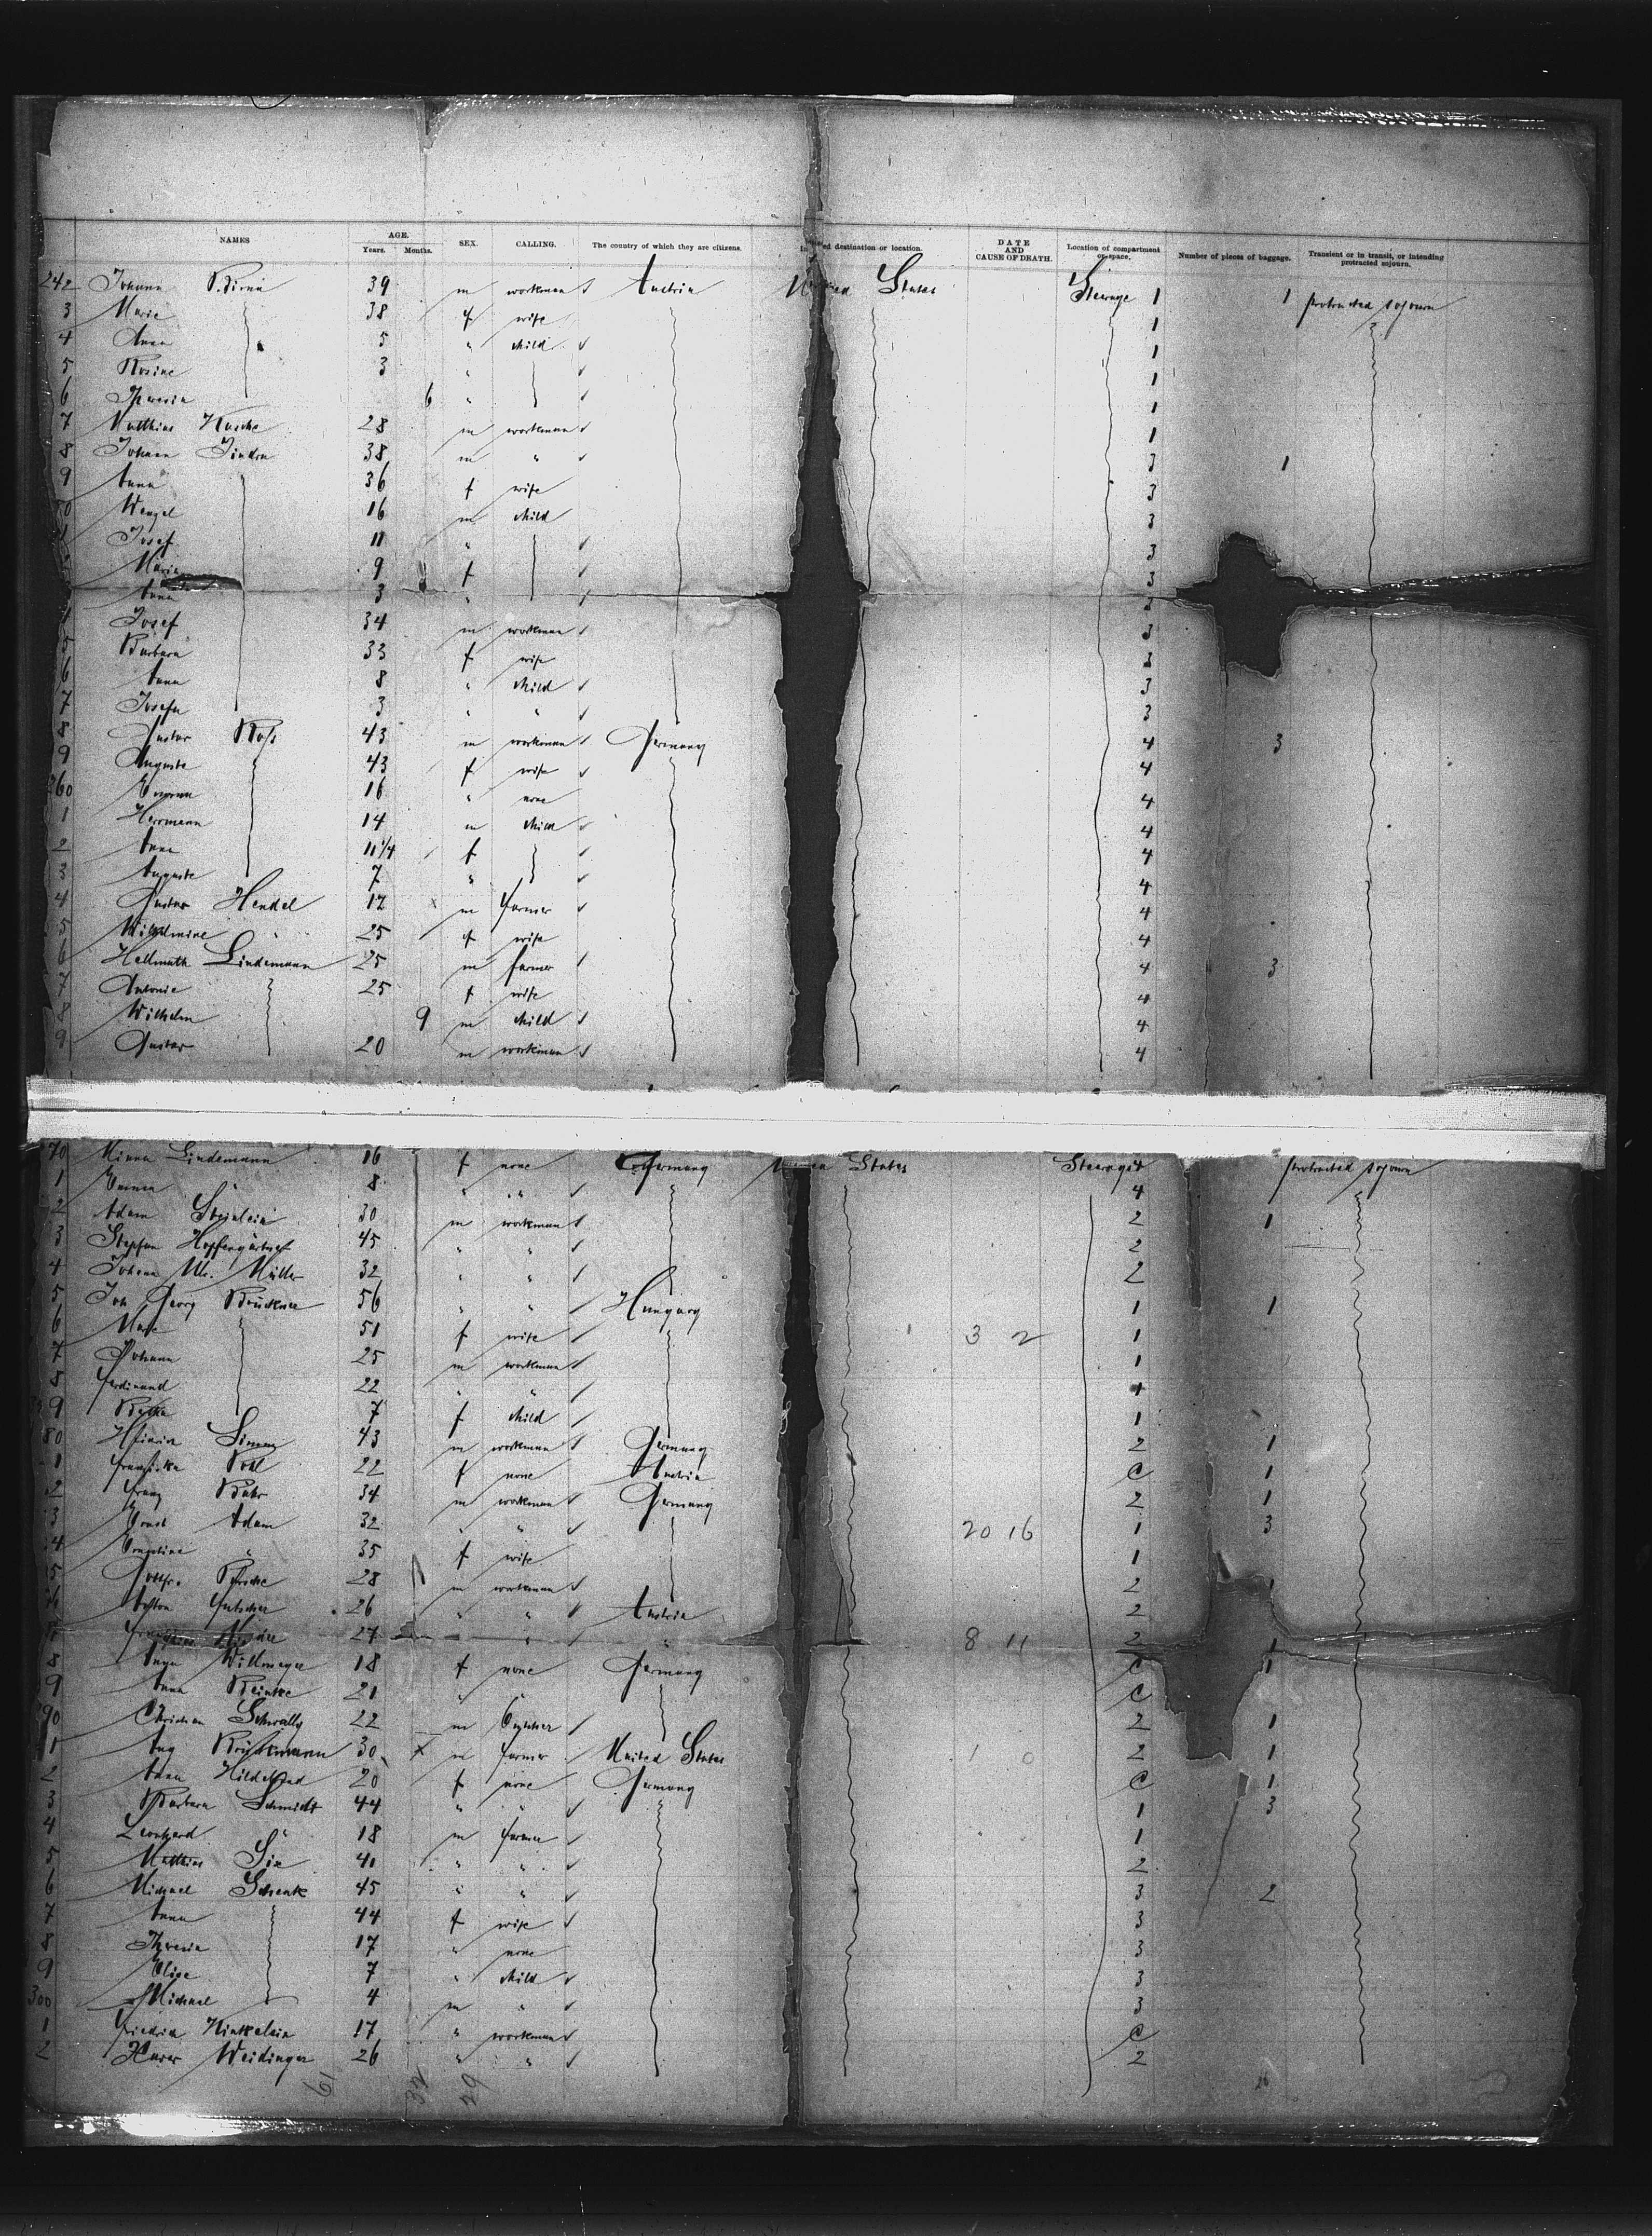 NAMES AGE. Years. Months. SEX. CALLING. The country of which they are citizens. destination or location. DATE AND CAUSE OF DEATH. Location of compartment or space. Number of pieces of baggage. Transient or in transit, or intending protracted sojourn.
242 Johann 39 m workman Austria United States Steerage 1 1 protracted sojourn
3 Marie 38 f wife 1
4 Anna 5 " child 1
5 Rosine 3 " 1
6 Theresia 6 " 1
7 Matthias 28 m workman 1
8 Johann Jindra 38 m " 3 1
9 Anna 36 f wife 3
50 Wenzel 16 m child 3
1 Josef 11 " 3
Maria 9 f 3
Anna 3 " 3
Josef 34 m workman 3
5 Barbara 33 f wife 3
6 Anna 8 " child 3
7 Josefa 3 " " 3
8 Gustav 43 m workman Germany 4 3
9 Auguste 43 f wife 4
260 Emma 16 " none 4
1 Herrmann 14 m child 4
2 Anna 11 1/4 f 4
3 Auguste 7 " 4
4 Gustav Hendel 17 m farmer 4
5 Wilhelmine " 25 f wife 4
6 Hellmuth Lindemann 25 m farmer 4 3
7 Antonie 25 f wife 4
8 Wilhelm 9 m child 4
9 Gustav 20 m workman 4
70 Minna Lindemann 16 f none Germany States Steerage 4 protracted sojourn
1 Emma " 8 " " 4
2 Adam Steinlein 30 m workman 2 1
3 Stephan Hopfengärtner 45 " " 2
4 Johann Müller 32 " " 2
5 Joh Georg Brückner 56 " " Hungary 1 1
6 51 f wife 3 2 1
7 Johann 25 m workman 1
8 Ferdinand 22 " " 1
9 7 f child 1
80 Heinrich Simon 43 m workman Germany 2 1
1 Franziska 22 f none Austria C 1
2 Franz 34 m workman Germany 2 1
3 Ernst Adam 32 " " 20 16 1 3
4 Ernestine " 35 f wife 1
5 28 m workman 2 1
6 Anton 26 " " Austria 2
7 27 " " 8 11 2 1
8 18 f none Germany C 1
9 Anna Reinke 21 " " C
90 Christian 22 m butcher 2 1
1 Aug 30 x m farmer United States 1 0 2 1
2 Anna Hildebrand 20 f none Germany C 1
3 Barbara Schmidt 44 " " 1 3
4 Leonhard " 18 m farmer 1
5 Mathias Six 41 " " 2
6 Michael Schenk 45 " " 3 2
7 Anna 44 f wife 3
8 Theresia 17 " none 3
9 Elise 7 " child 3
300 Michael 4 m " 3
1 Friedrich Hinkelein 17 " workman C
2 Xaver Weidinger 26 " " 2
61 32 29 26